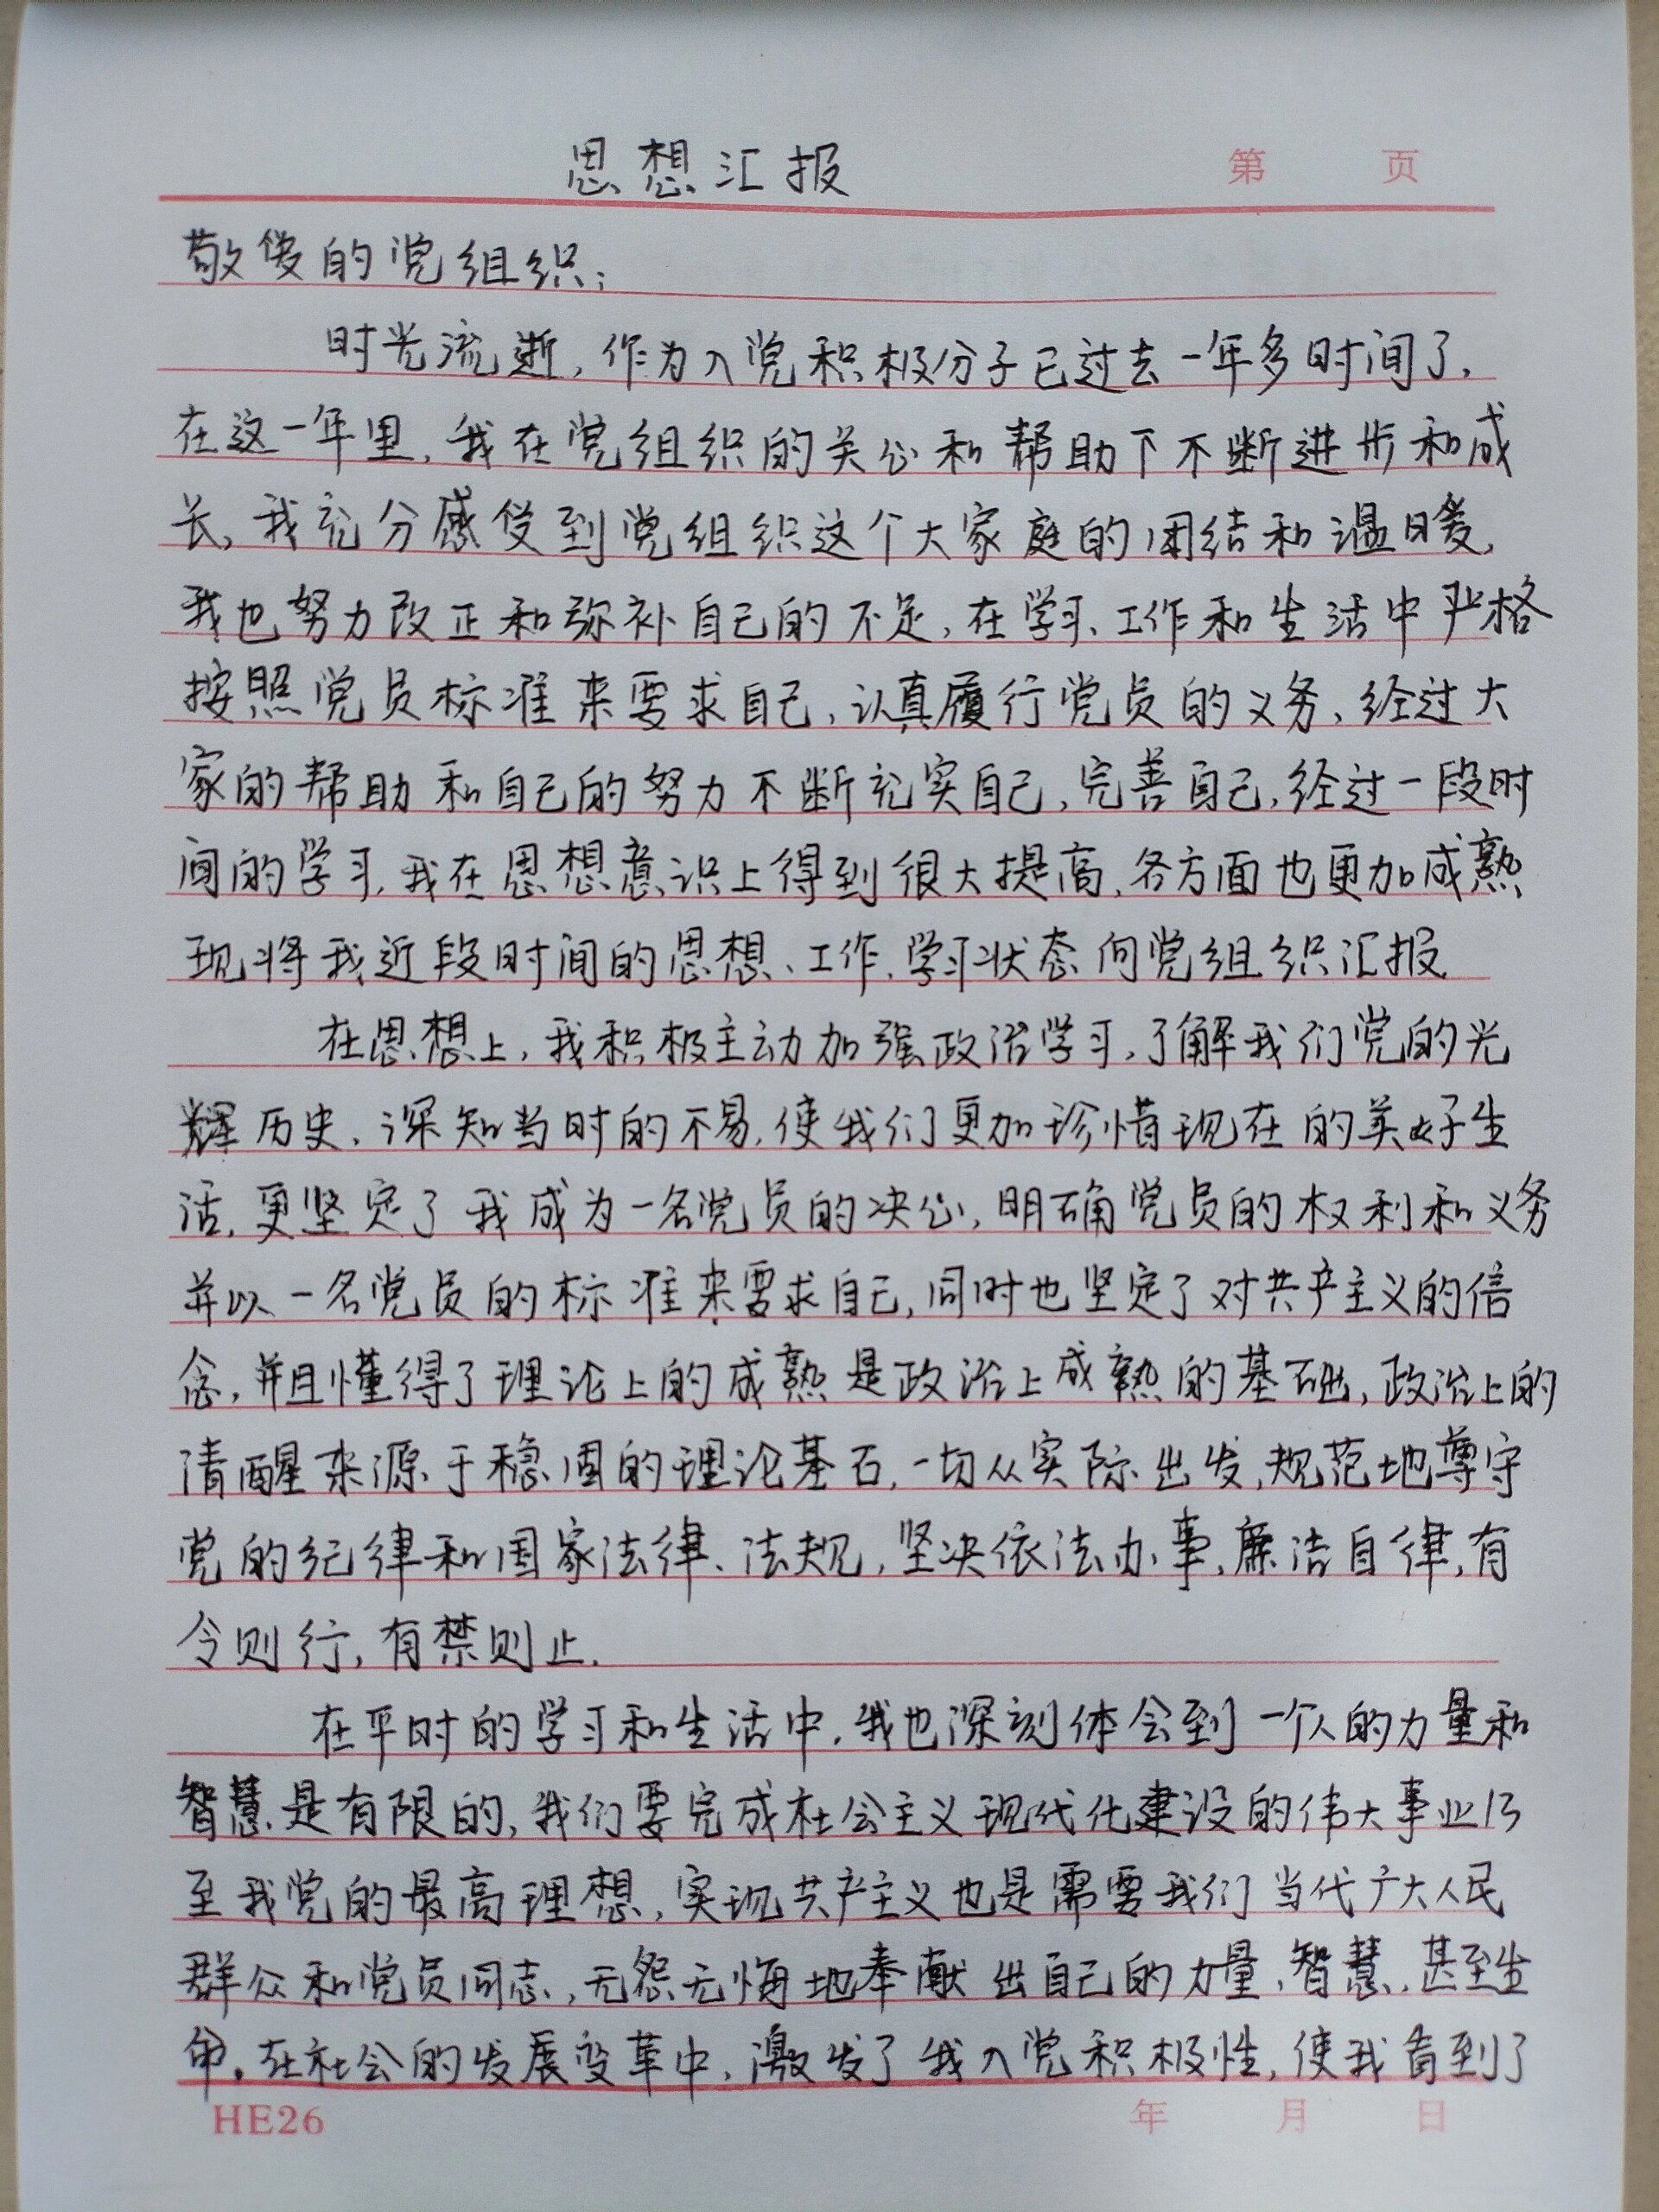 思想汇报
第 页
敬爱的党组织:
时光流逝,作为入党积极分子已过去一年多时间了.
在这一年里,我在党组织的关心和帮助下不断进步和成
长,我充分感受到党组织这个大家庭的团结和温暖,
我也努力改正和弥补自己的不足,在学习、工作和生活中严格
按照党员标准来要求自己,认真履行党员的义务、经过大
家的帮助和自己的努力不断充实自己,完善自己,经过一段时
间的学习,我在思想意识上得到很大提高,各方面也更加成熟
现将我近段时间的思想、工作、学习状态向党组织汇报
在思想上,我积极主动加强政治学习,了解我们党的光
辉历史,深知当时的不易,使我们更加珍惜现在的美好生
活,更坚定了我成为一名党员的决心,明确党员的权利和义务
并以一名党员的标准来要求自己,同时也坚定了对共产主义的信
念,并且懂得了理论上的成熟是政治上成熟的基础,政治上的
清醒来源于稳固的理论基石,一切从实际出发,规范地尊守
党的纪律和国家法律、法规,坚决依法办事,廉洁自律,有
令则行,有禁则止.
在平时的学习和生活中,我也深刻体会到一个人的力量和
智慧是有限的,我们要完成社会主义现代化建设的伟大事业乃
至我党的最高理想,实现共产主义也是需要我们当代广大人民
群众和党员同志,无怨无悔地奉献出自己的力量、智慧,甚至生
命。在社会的发展变革中,激发了我入党积极性,使我看到了
HE26 年 月 日